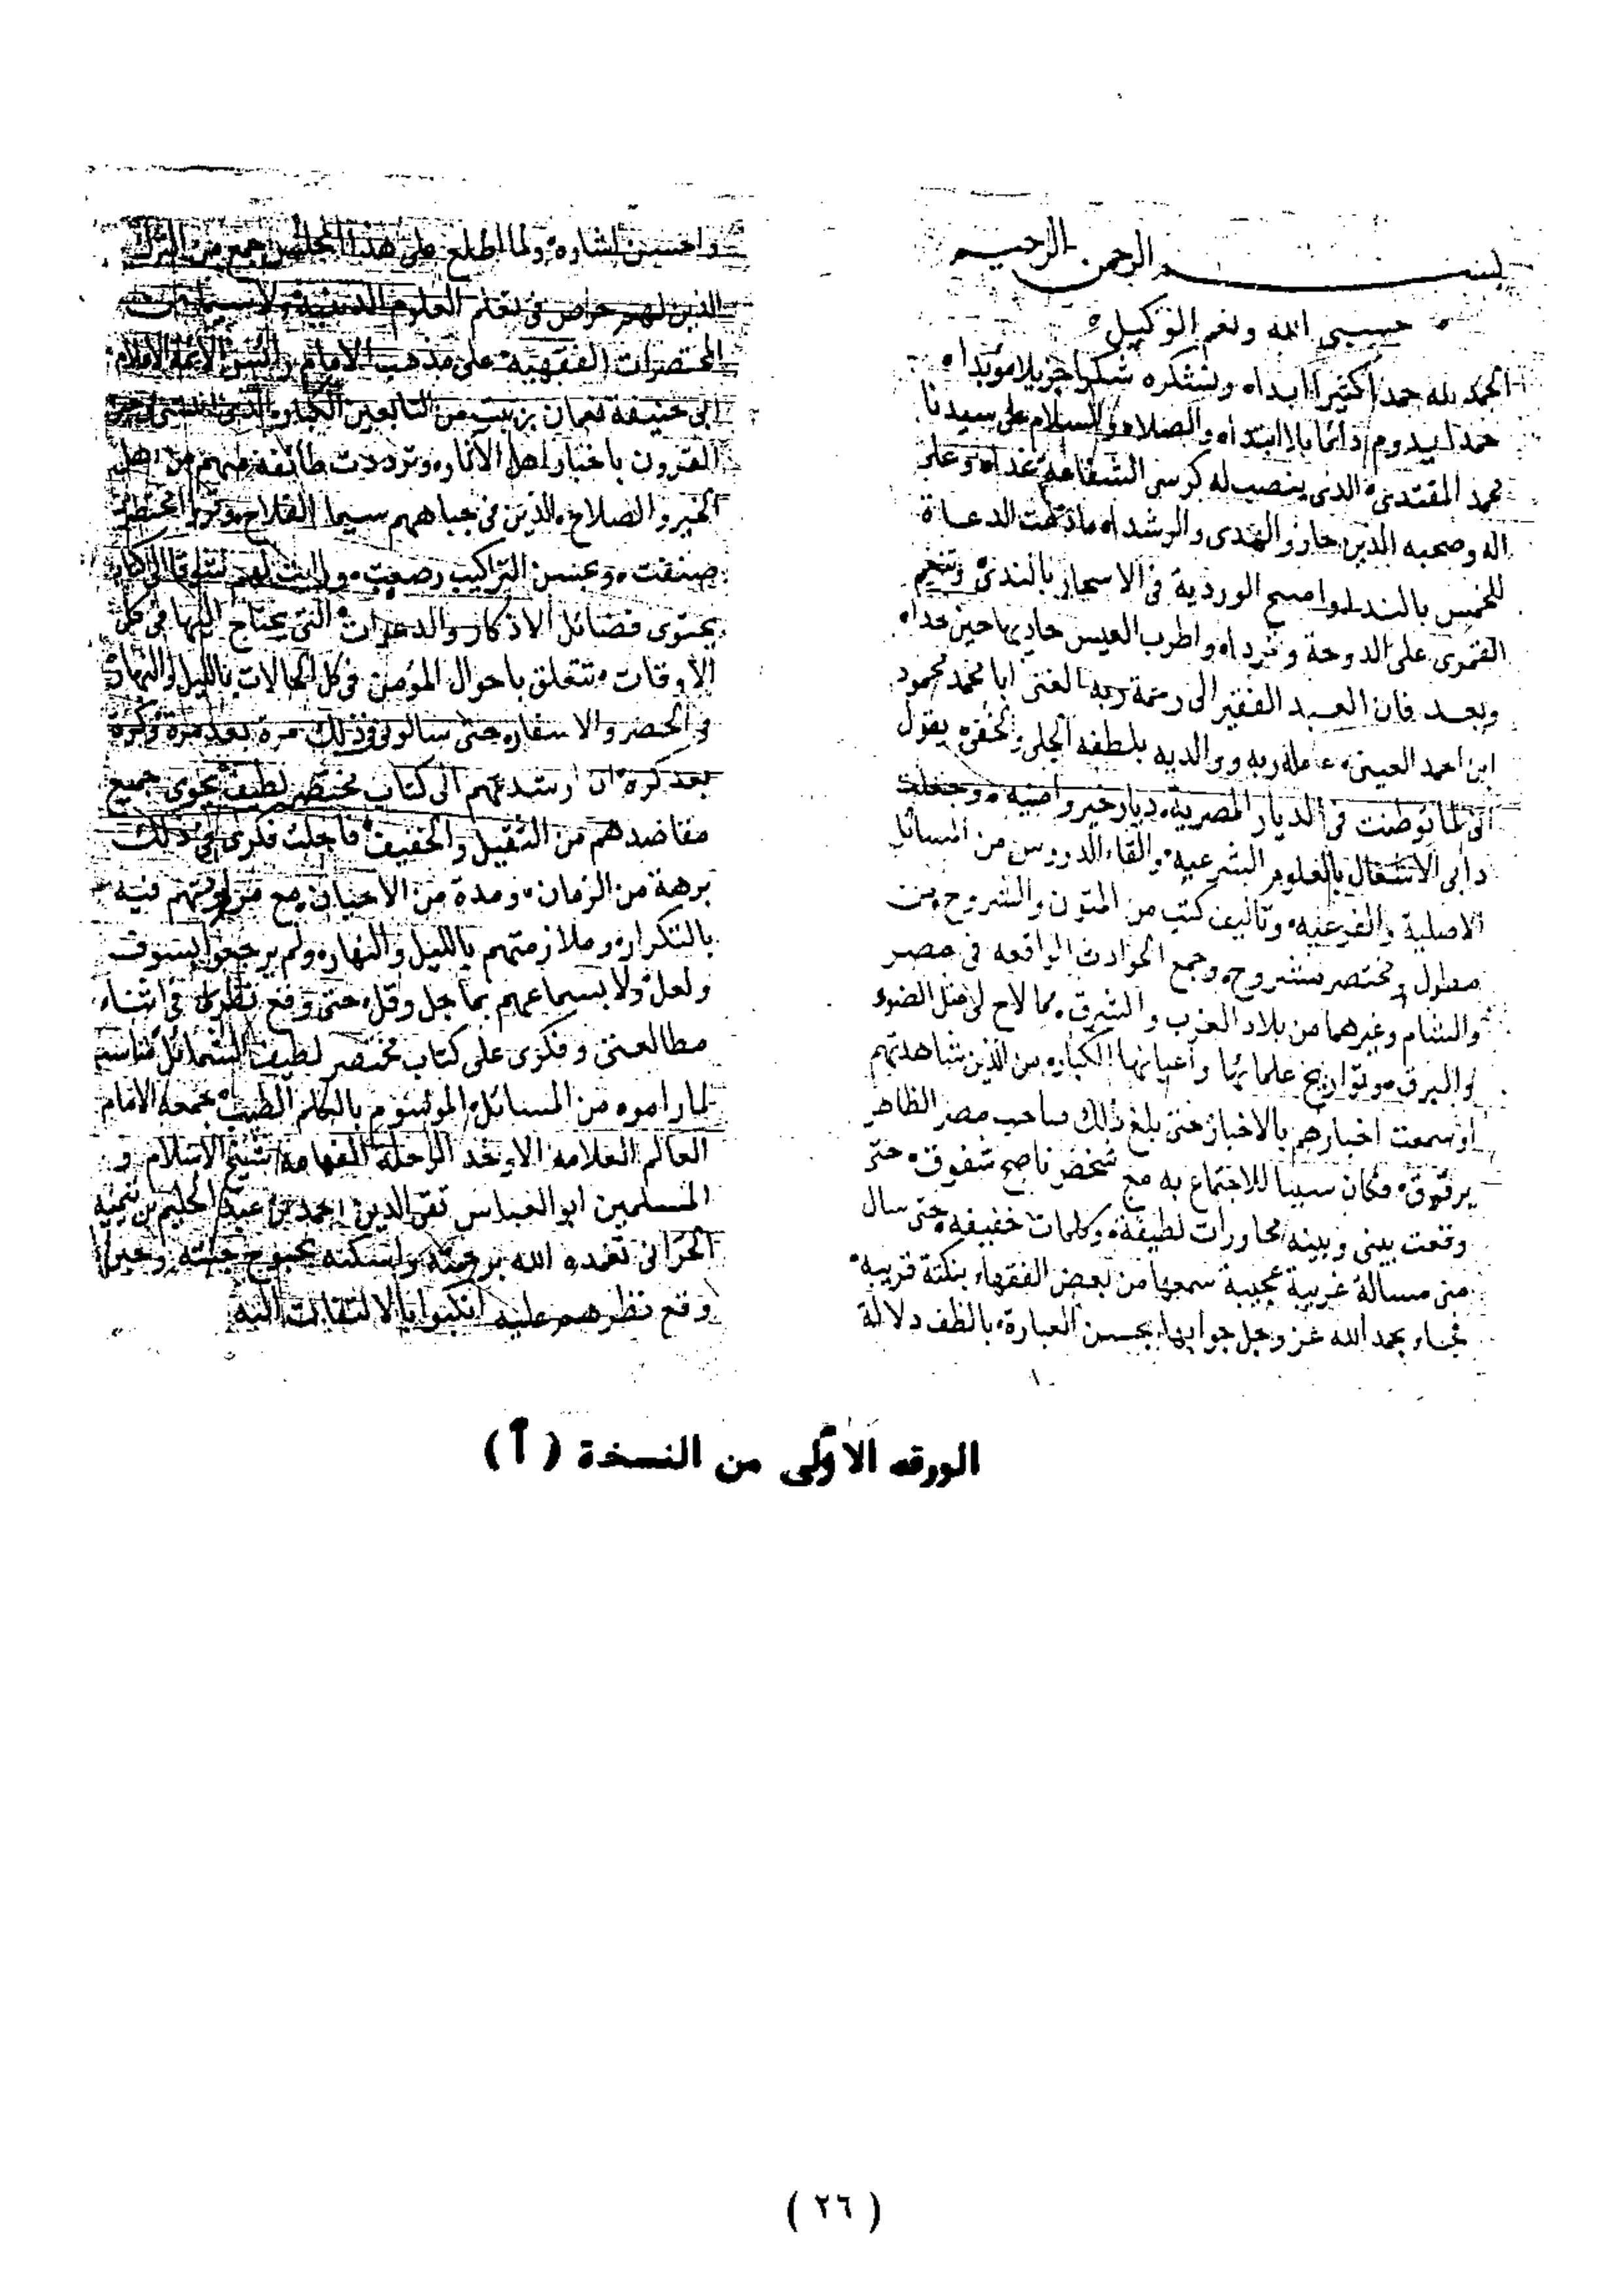 بسم الله الرحمن الرحيم
حسبي الله ونعم الوكيل
الحمد لله حمدا كثيرا ابدا ونشكره شكرا جزيلا مؤبدا
حمدا يدوم دائما بلا ابتدا والصلاه والسلام على سيدنا
محمد المقتدى الذى ينصب له كرسى الشفاعة غدا وعلى
اله وصحبه الذين حازوا الهدى والرشدا ما دعت الدعاة
للخمس بالندا وامسح الوردية فى الاسحار بالندى وتنغيم
القمرى على الدوحة وغردا واطرب العيس حاديها حين حدا
وبعد فان العبد الفقير الى رحمة ربه الغنى ابا محمد محمود
ابن احمد العينى عامله ربه ووالديه بلطفه الجلى والخفى يقول
انى لما توطنت فى الديار المصرية ديار خير وامنيه وجعلت
دابى الاشتغال بالعلوم الشرعيه والقاء الدروس من المسائل
الاصلية والفرعيه وتاليف كتب من المتون والشروح بين
مطول ومختصر مشروح وجمع الحوادث الواقعه فى مصر
والشام وغيرهما من بلاد الغرب والشرق مما لاح لى مثل الضوء
والبرق وتواريخ علمائها واعيانها الكبار من الذين شاهدتهم
او سمعت اخبارهم بالاخبار حتى بلغ ذلك صاحب مصر الظاهر
برقوق فكان سببا للاجتماع به مع شخص ناصح شفوق حتى
وقعت بينى وبينه محاورات لطيفة وكلمات خفيفه حتى سال
منى مسالة غريبة عجيبة سمعها من بعض الفقهاء بنكتة قريبة
فجاء بحمد الله عز وجل جوابها بحسن العبارة بالطف دلالة
واحسن اشاره ولما اطلع على هذا المجلس جمع من الترك
الذين لهم حواص فى تعلم العلوم الدينية ولا سيما
المختصرات الفقهية على مذهب الامام رئيس الائمة الاعلام
ابى حنيفة نعمان بن ثبت من التابعين الكبار الذى
القرون باخبار اهل الاثار وترددت طائفة منهم من اهل
الخير والصلاح الذين فى جباههم سيما الفلاح
صنفت وعسن التراكيب رصعت ورايت لهم شوقا الى كتاب
يحتوى فضائل الاذكار والدعوات التى يحتاج اليها فى كل
الاوقات وتتعلق باحوال المؤمن فى كل الحالات بالليل والنهار
والحضر والاسفار حتى سالونى فى ذلك مرة بعد مرة وكرة
بعد كرة ان ارشدهم الى كتاب مختصر لطيف يحوى جميع
مقاصدهم من الثقيل والخفيف فاجلت فكرى فى ذلك
برهة من الزمان ومدة من الاحيان مع مراودتهم فيه
بالتكرار وملازمتهم بالليل والنهار ولم يرجعوا بسوف
ولعل ولا بسماعهم بما جل وقل حتى وقع نظرى فى اثناء
مطالعتى وفكرى على كتاب مختصر لطيف الشمائل مناسب
لما راموه من المسائل الموسوم بالكلم الطيب جمعه الامام
العالم العلامه الاوحد الرحلة الفهامة شيخ الاسلام و
المسلمين ابو العباس تقى الدين احمد بن عبد الحليم بن تيمية
الحرانى تغمده الله برحمته واسكنه بحبوح جنته وحين
وقع نظرهم عليه انكبوا بالالتفات اليه
الورقه الاولى من النسخة ( آ )
( ٢٦ )